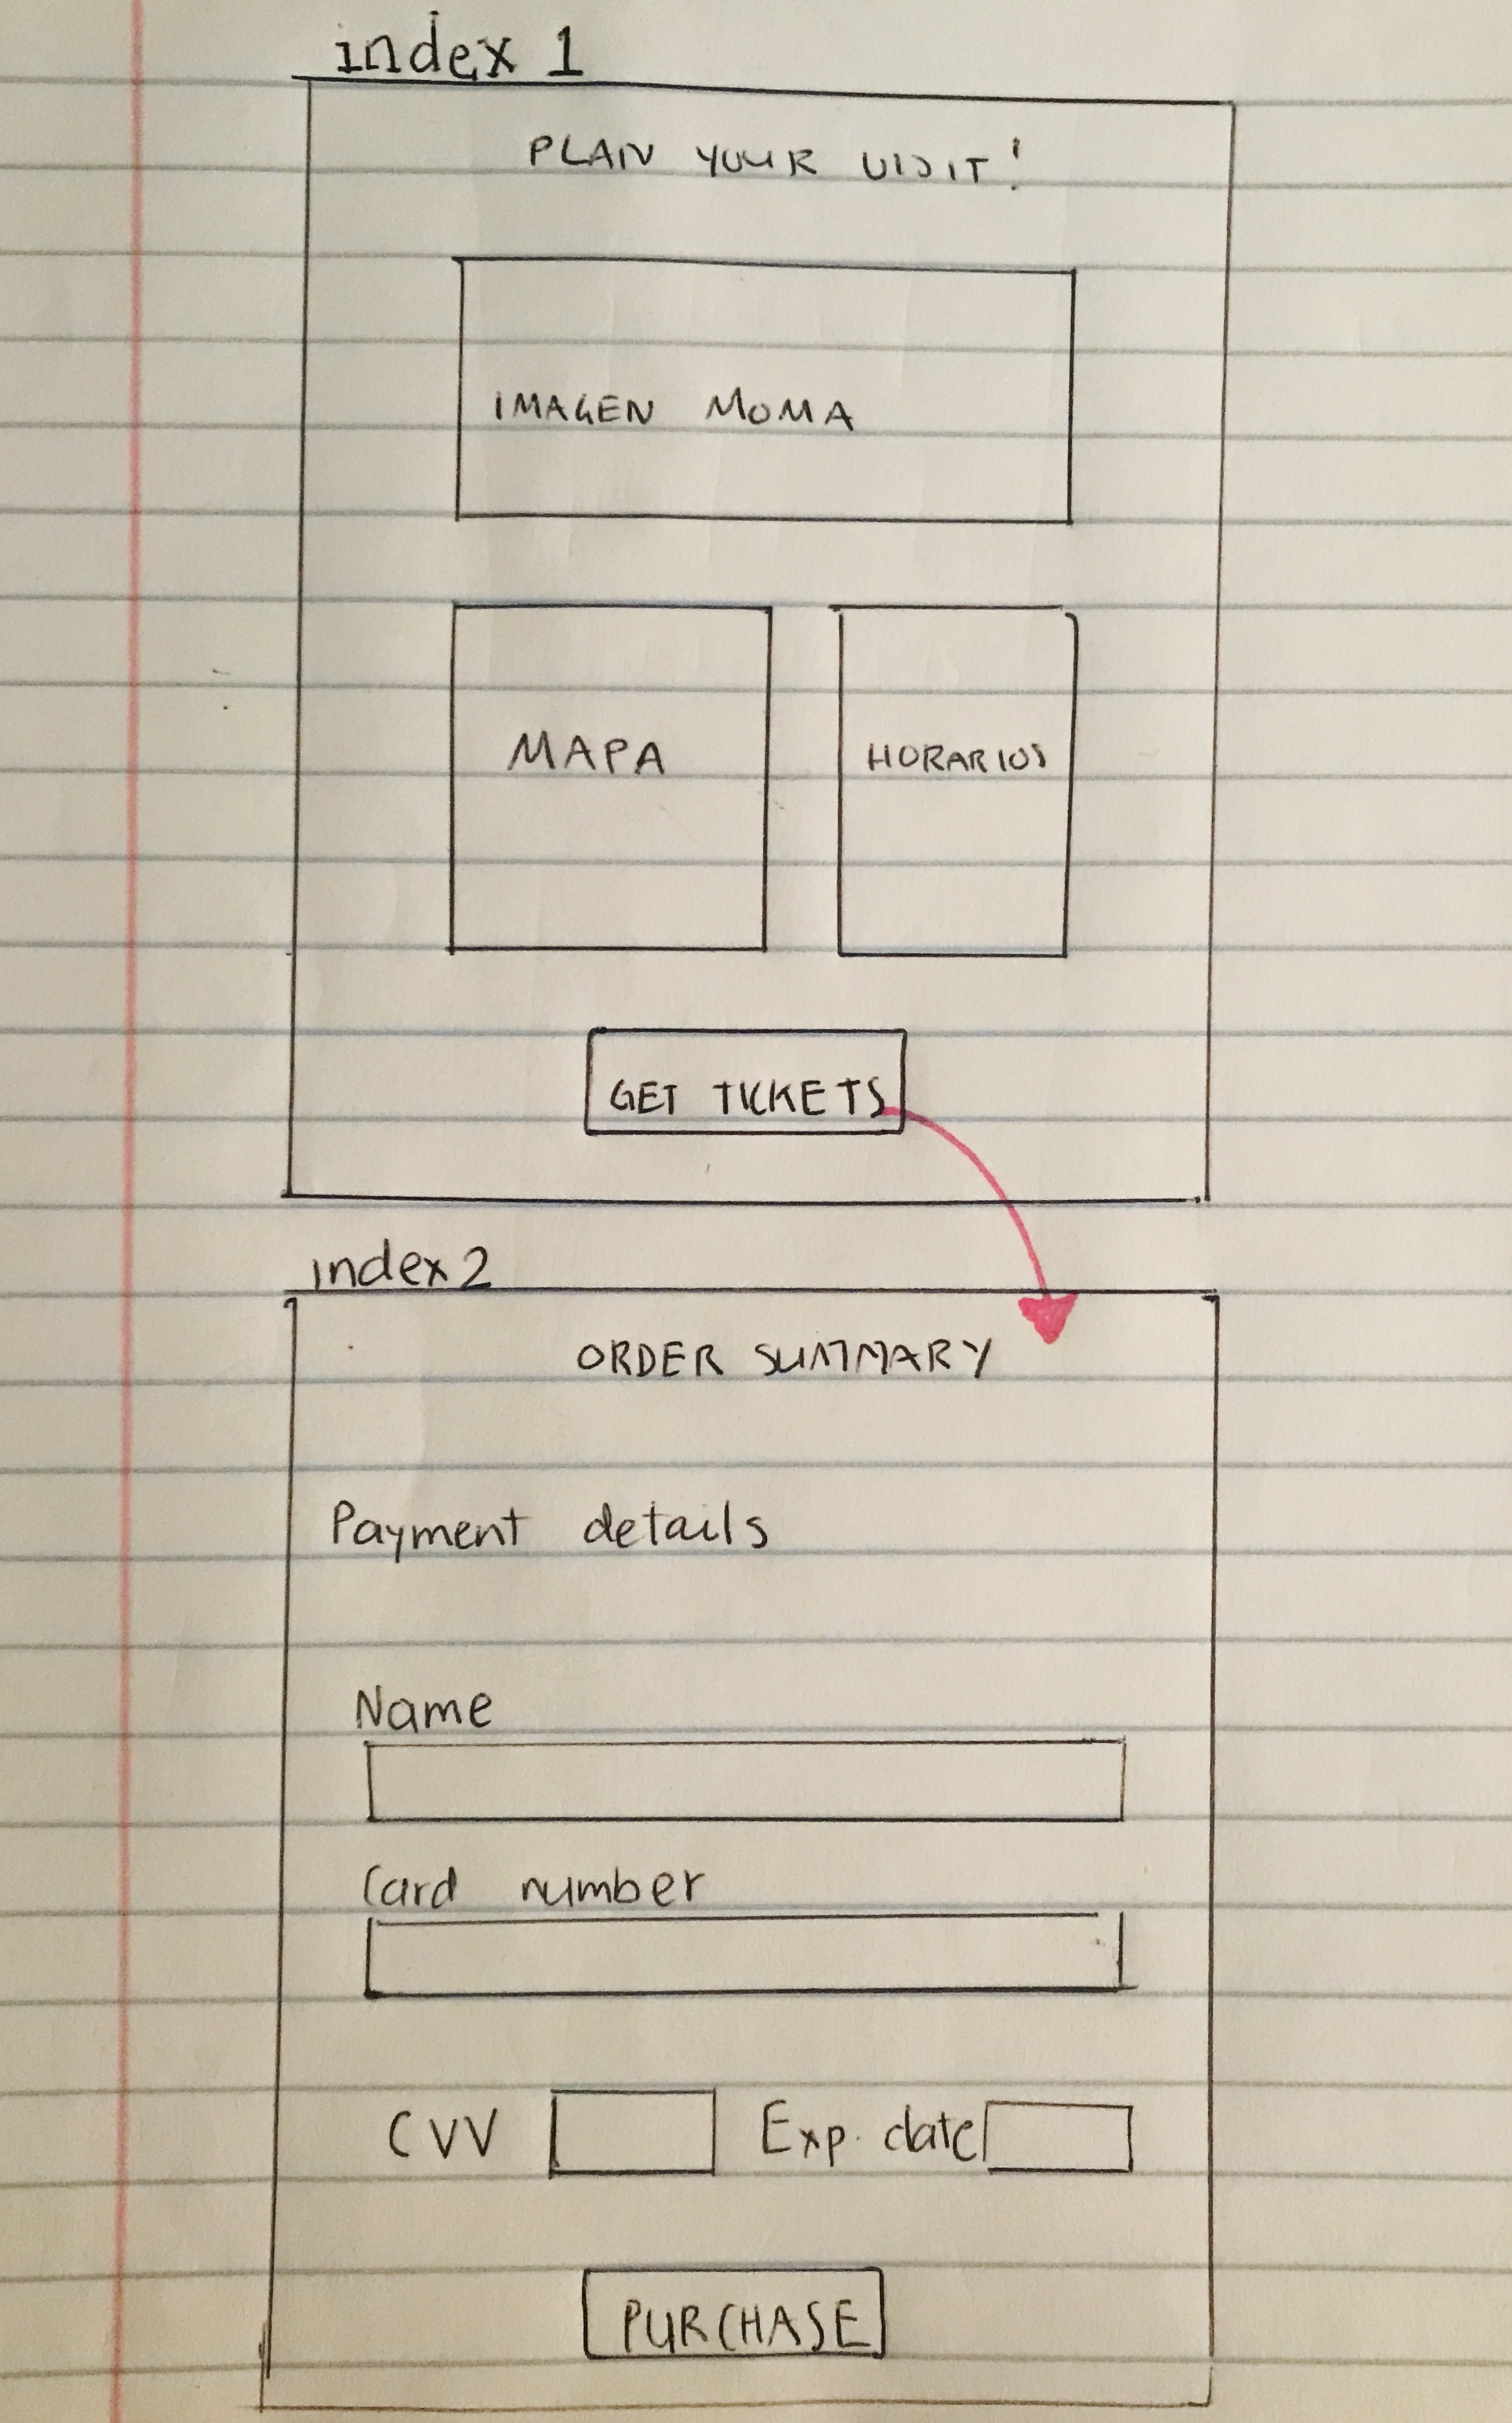 index 1
PLAN YOUR VISIT!
IMAGEN MOMA
MAPA HORARIOS
GET TICKETS
index 2
ORDER SUMMARY
Payment details
Name
Card number
CVV Exp. date
PURCHASE